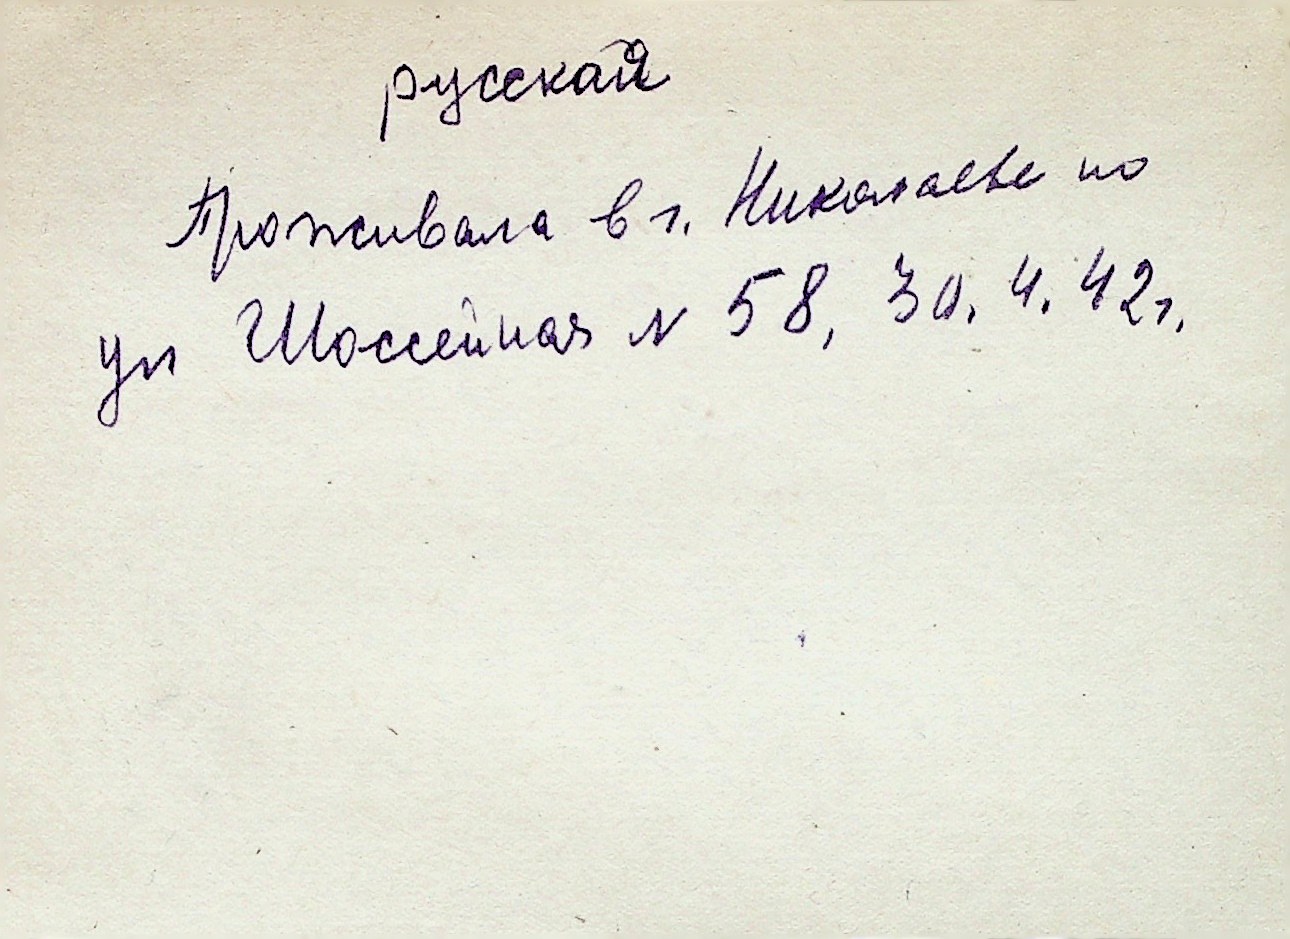 русская
Проживала в г. Николаеве по
ул Шоссейная N 58, 30.4.42г.